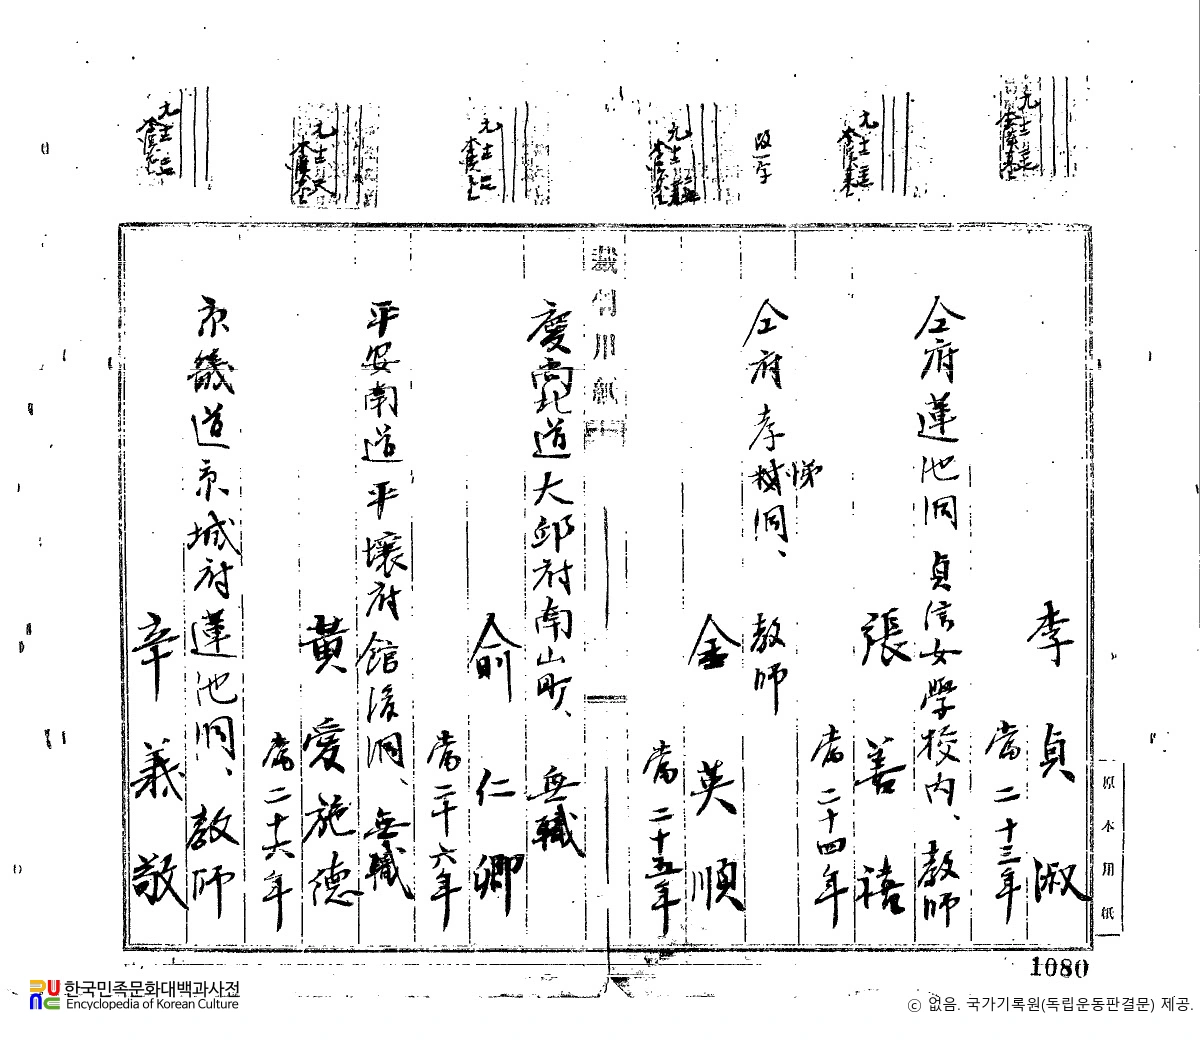 改一字
李貞淑
當二十三年
仝府蓮池洞貞信女學校内、教師
張善禧
當二十四年
仝府孝悌洞、教師
金英順
當二十五年
裁判用紙
慶尚北道大邱府南山町、無職
俞仁卿
當二十六年
平安南道平壤府館後洞、無職
黃愛施德
當二十六年
京畿道京城府蓮池洞、教師
辛義敬
原本用紙
1080
한국민족문화대백과사전
Encyclopedia of Korean Culture
ⓒ 없음. 국가기록원(독립운동판결문) 제공.